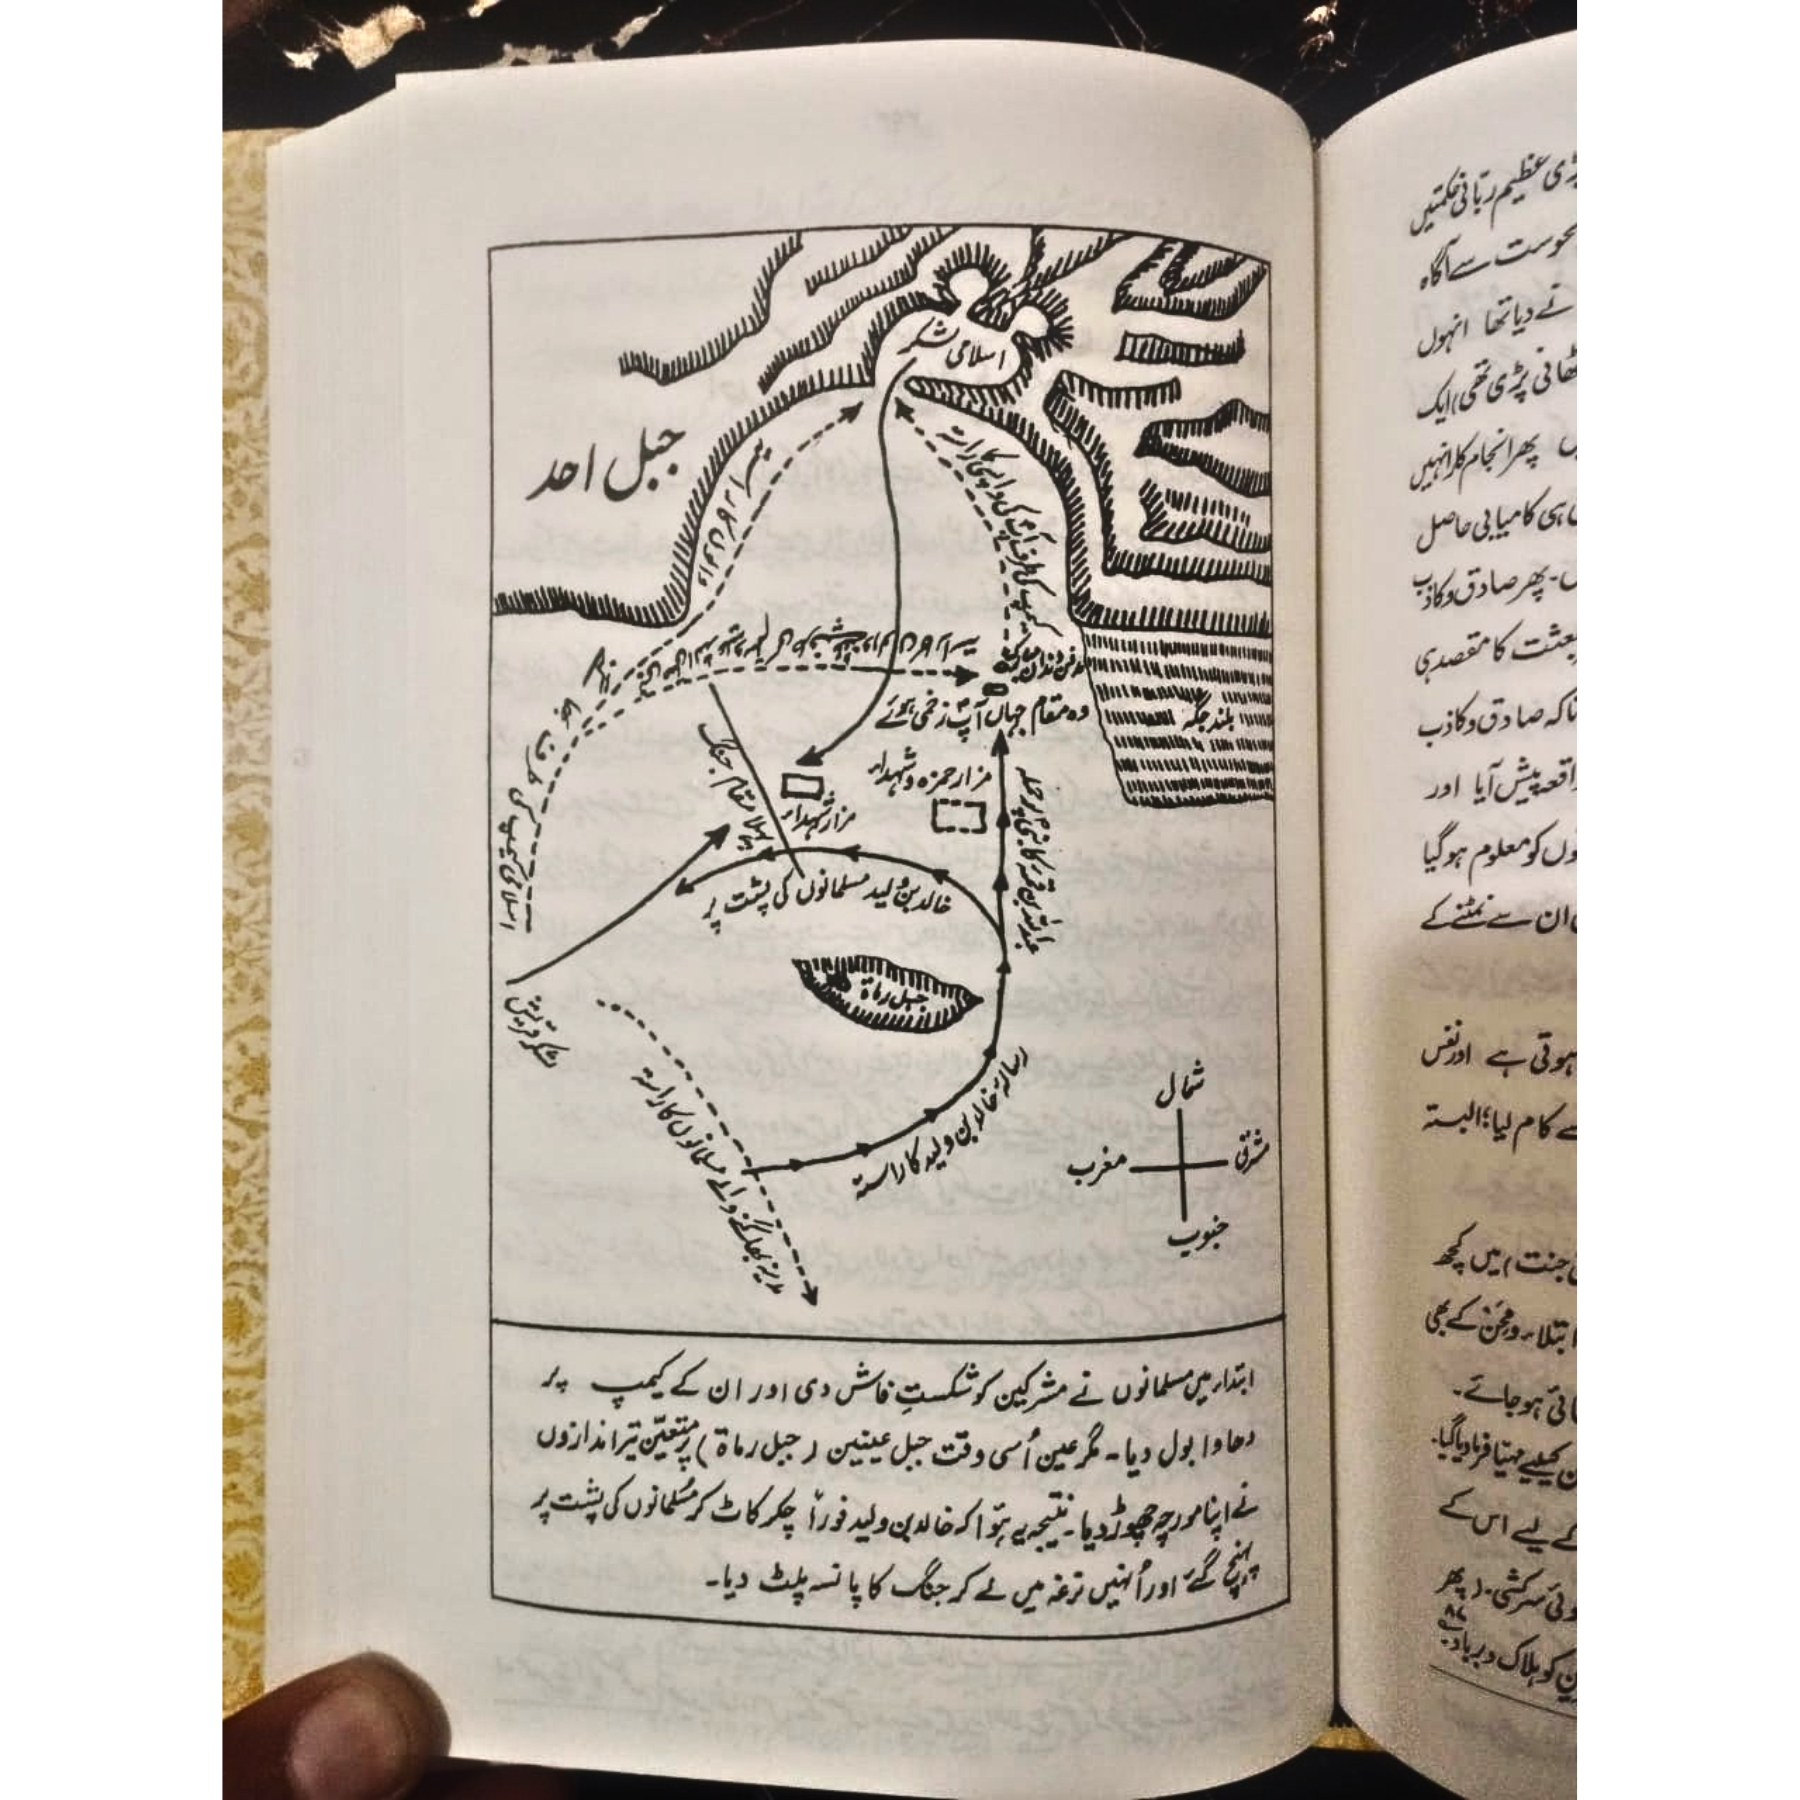 اسلامی لشکر
جبل احد
کیمپ کی طرف آپؐ کی واپسی کا راستہ
وہ مقام جہاں آپؐ زخمی ہوئے
بلند جگہ
مزار حمزہ و شہداء
مزار شہداء
پہلا مقام جنگ
خالد بن ولید مسلمانوں کی پشت پر
جبل رماۃ
لشکر قریش
رسالہ خالد بن ولید کا راستہ
مدینہ بھاگنے والے مسلمانوں کا راستہ
شمال
مغرب
مشرق
جنوب
ابتداء میں مسلمانوں نے مشرکین کو شکستِ فاش دی اور ان کے کیمپ پر
دھاوا بول دیا۔ مگر عین اُسی وقت جبل عینین (جبل رماۃ) پر متعیّن تیراندازوں
نے اپنا مورچہ چھوڑ دیا۔ نتیجہ یہ ہُوا کہ خالد بن ولید فوراً چکر کاٹ کر مُسلمانوں کی پشت پر
پہنچ گئے اور اُنہیں نرغہ میں لے کر جنگ کا پانسہ پلٹ دیا۔
عظیم ربّانی حکمتیں
نحوست سے آگاہ
نے دیا تھا انہوں
اٹھانی پڑی تھی) ایک
پھر انجام کار انہیں
ہی کامیابی حاصل
پھر صادق و کاذب
بعثت کا مقصد ہی
تاکہ صادق و کاذب
واقعہ پیش آیا اور
کو معلوم ہو گیا
ان سے نمٹنے کے
ہوتی ہے اور نفس
سے کام لیا؛ البتہ
جنت) میں کچھ
ابتلاء و محن کے بھی
ہو جاتے۔
کیلئے مہیّا فرما دیا گیا۔
کے لیے اس کے
سرکشی۔ (پھر
کو ہلاک و برباد